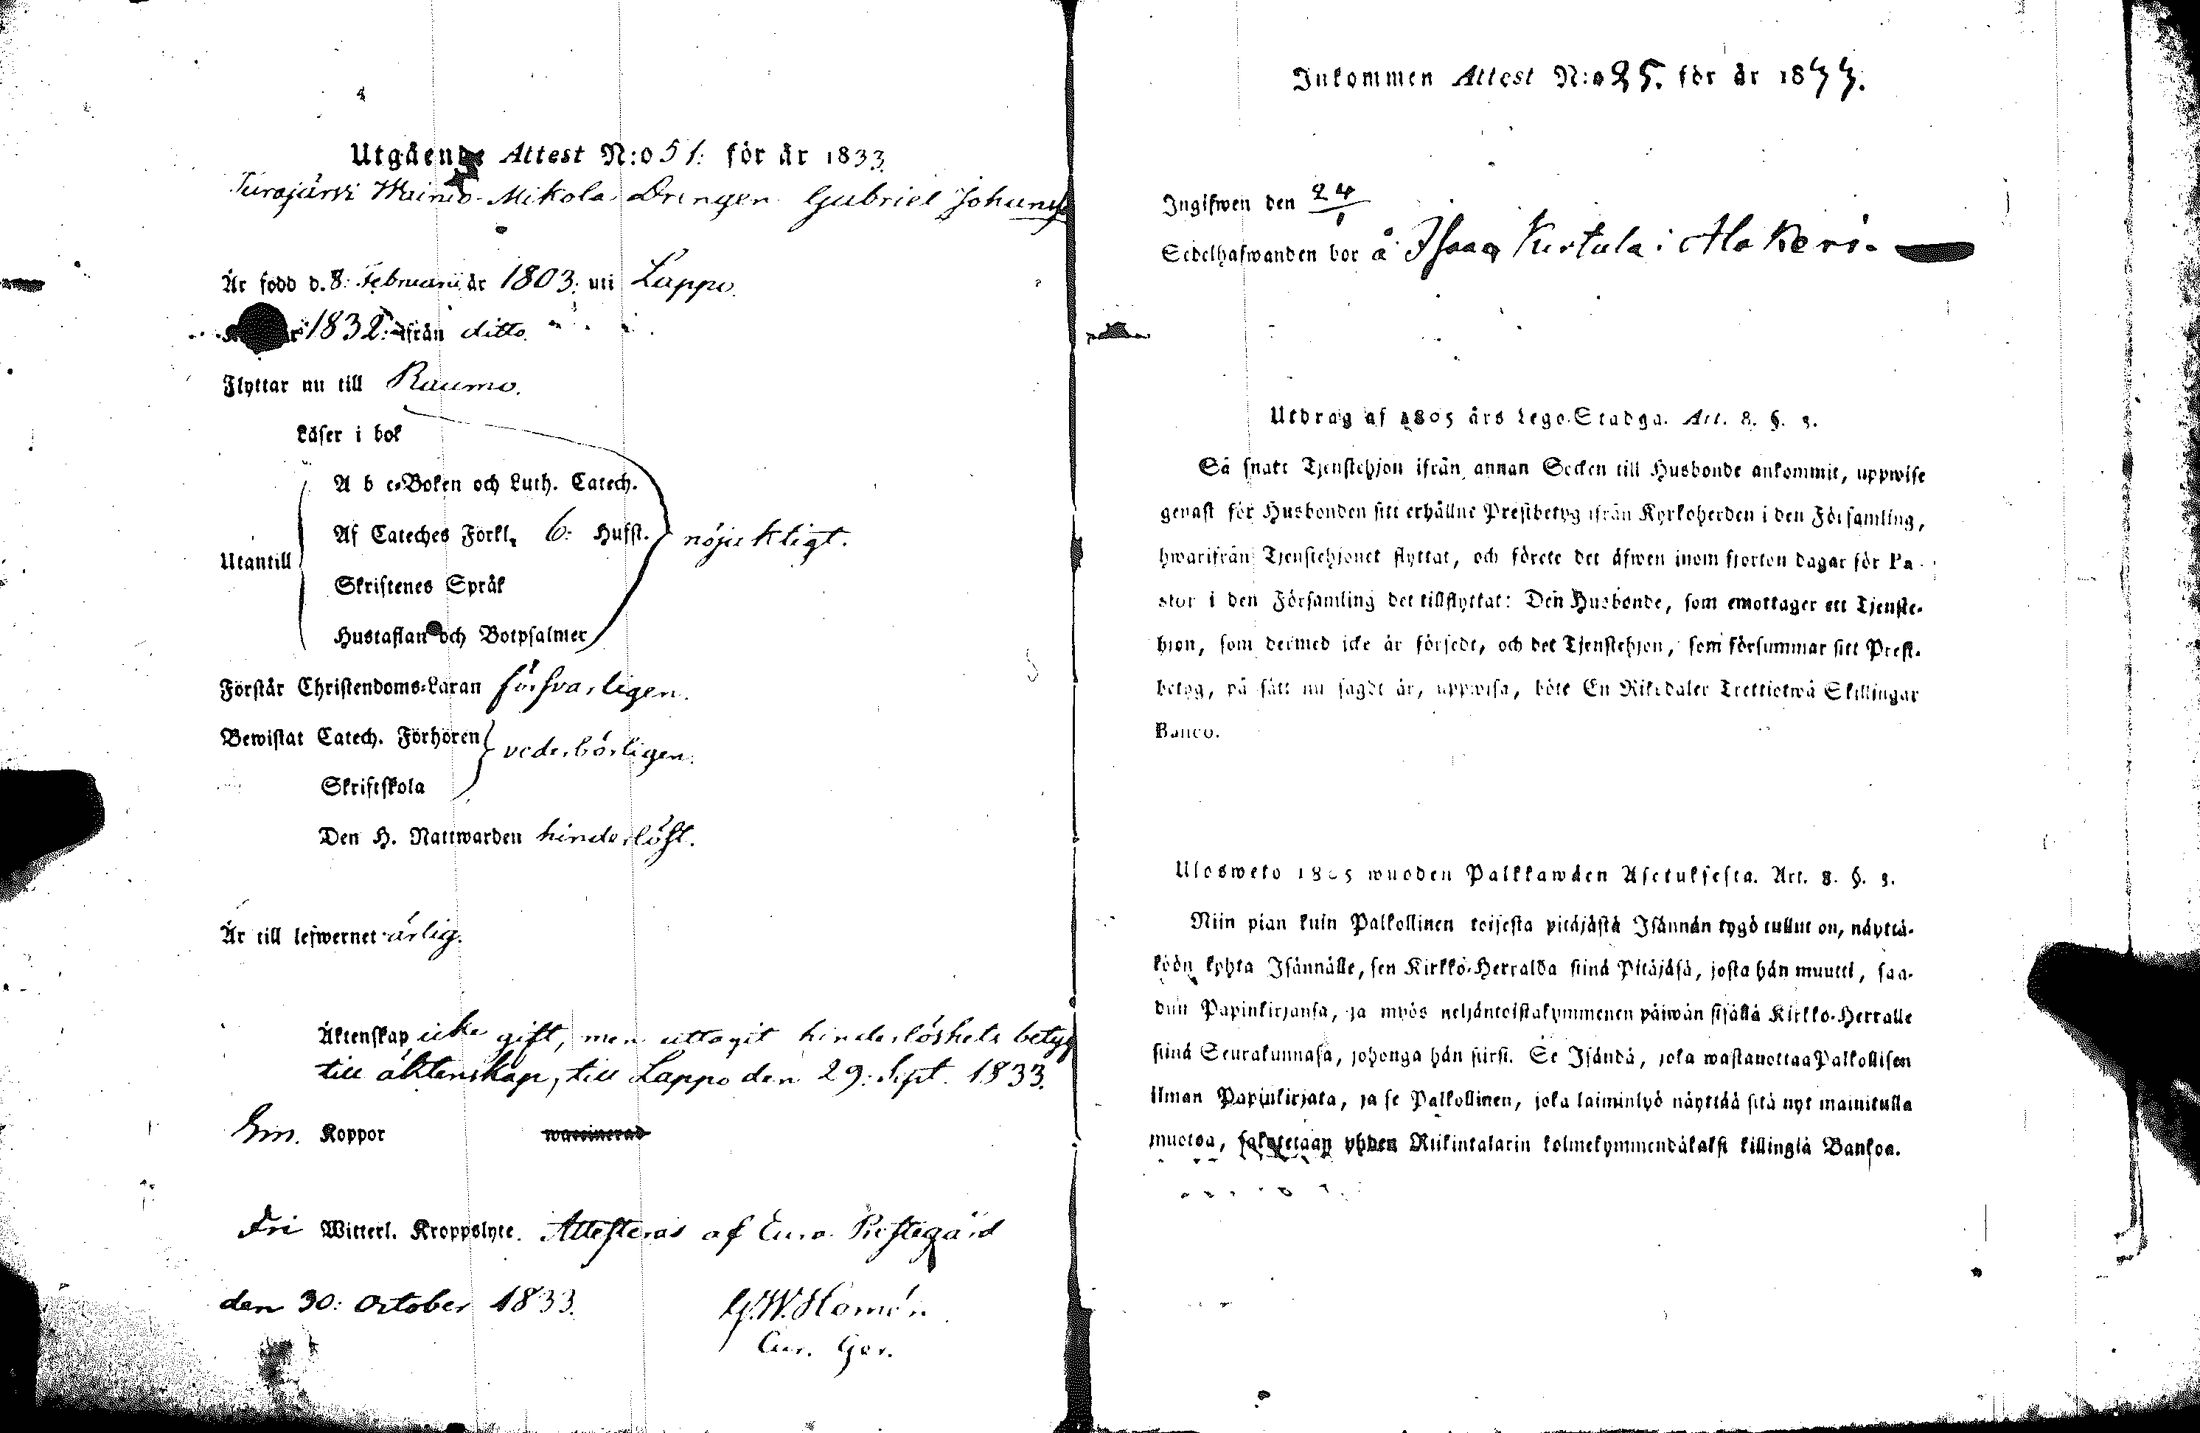 Utgående Attest N:o 51: för år 1833.
Turajärvi Wainio-Mikola Drengen Gabriel
Är född d. 8: Februarii år 1803: uti Lappo.
1832: ifrån ditto.
Flyttar nu till Raumo.
Läser i bok
A b c-Boken och Luth. Catech.
Af Cateches Förkl. 6: Hufst. nöjaktligt.
Utantill
Skriftenes Språk
Hustaflan och Botpsalmer
Förstår Christendoms-Läran försvarligen.
Bewistat Catech. Förhören vederbörligen.
Skriftskola
Den H. Nattwarden hinderlöst.
Är till lefwernet ärlig.
Äktenskap icke gift, men uttagit hinderlöshets betyg
till äktenskap, till Lappo den 29: Sept. 1833.
Koppor waccinerad
Fri Witterl. Kroppslyte. Attesteras af Eura Prestegård
den 30: October 1833.
G.W. Homén
Cur. Ger.
Inkommen Attest N:o 25. för år 18
Ingifwen den 24/1
Sedelhafwanden bor å Isaaq i
Utdrag af 1805 års Lego-Stadga. Art. 8. §. 3.
Så snart Tjenstehjon ifrån annan Socken till Husbonde ankommit, uppwise
genast för Husbonden sitt erhållne Prestbetyg ifrån Kyrkoherden i den Församling,
hwarifrån Tjenstehjonet flyttat, och förete det äfwen inom fjorton dagar för Pa-
stor i den Församling det tillflyttat: Den Husbonde, som emottager ett Tjenste-
hjon, som dermed icke är försedt, och det Tjenstehjon, som försummar sitt Prest-
betyg, på sätt nu sagdt är, uppwisa, böte En Riksdaler Trettiotwå Skillingar
Banco.
Ulosweto 1805 wuoden Palkkawäen Asetuksesta. Art. 8. §. 3.
Niin pian kuin Palkollinen toisesta pitäjästä Isännän tygö tullut on, näyttä-
köön kohta Isännälle, sen Kirkko-Herralda siinä Pitäjäsä, josta hän muutti, saa-
dun Papinkirjansa, ja myös neljäntoistakymmenen päiwän sisällä Kirkko-Herralle
siinä Seurakunnasa, johonga hän siirsi. Se Isändä, joka wastanottaa Palkollisen
ilman Papinkirjata, ja se Palkollinen, joka laiminlyö näyttää sitä nyt mainitulla
muotoa, sakotetaan yhden Riikintalarin kolmekymmendäkaksi killingiä Bankoa.